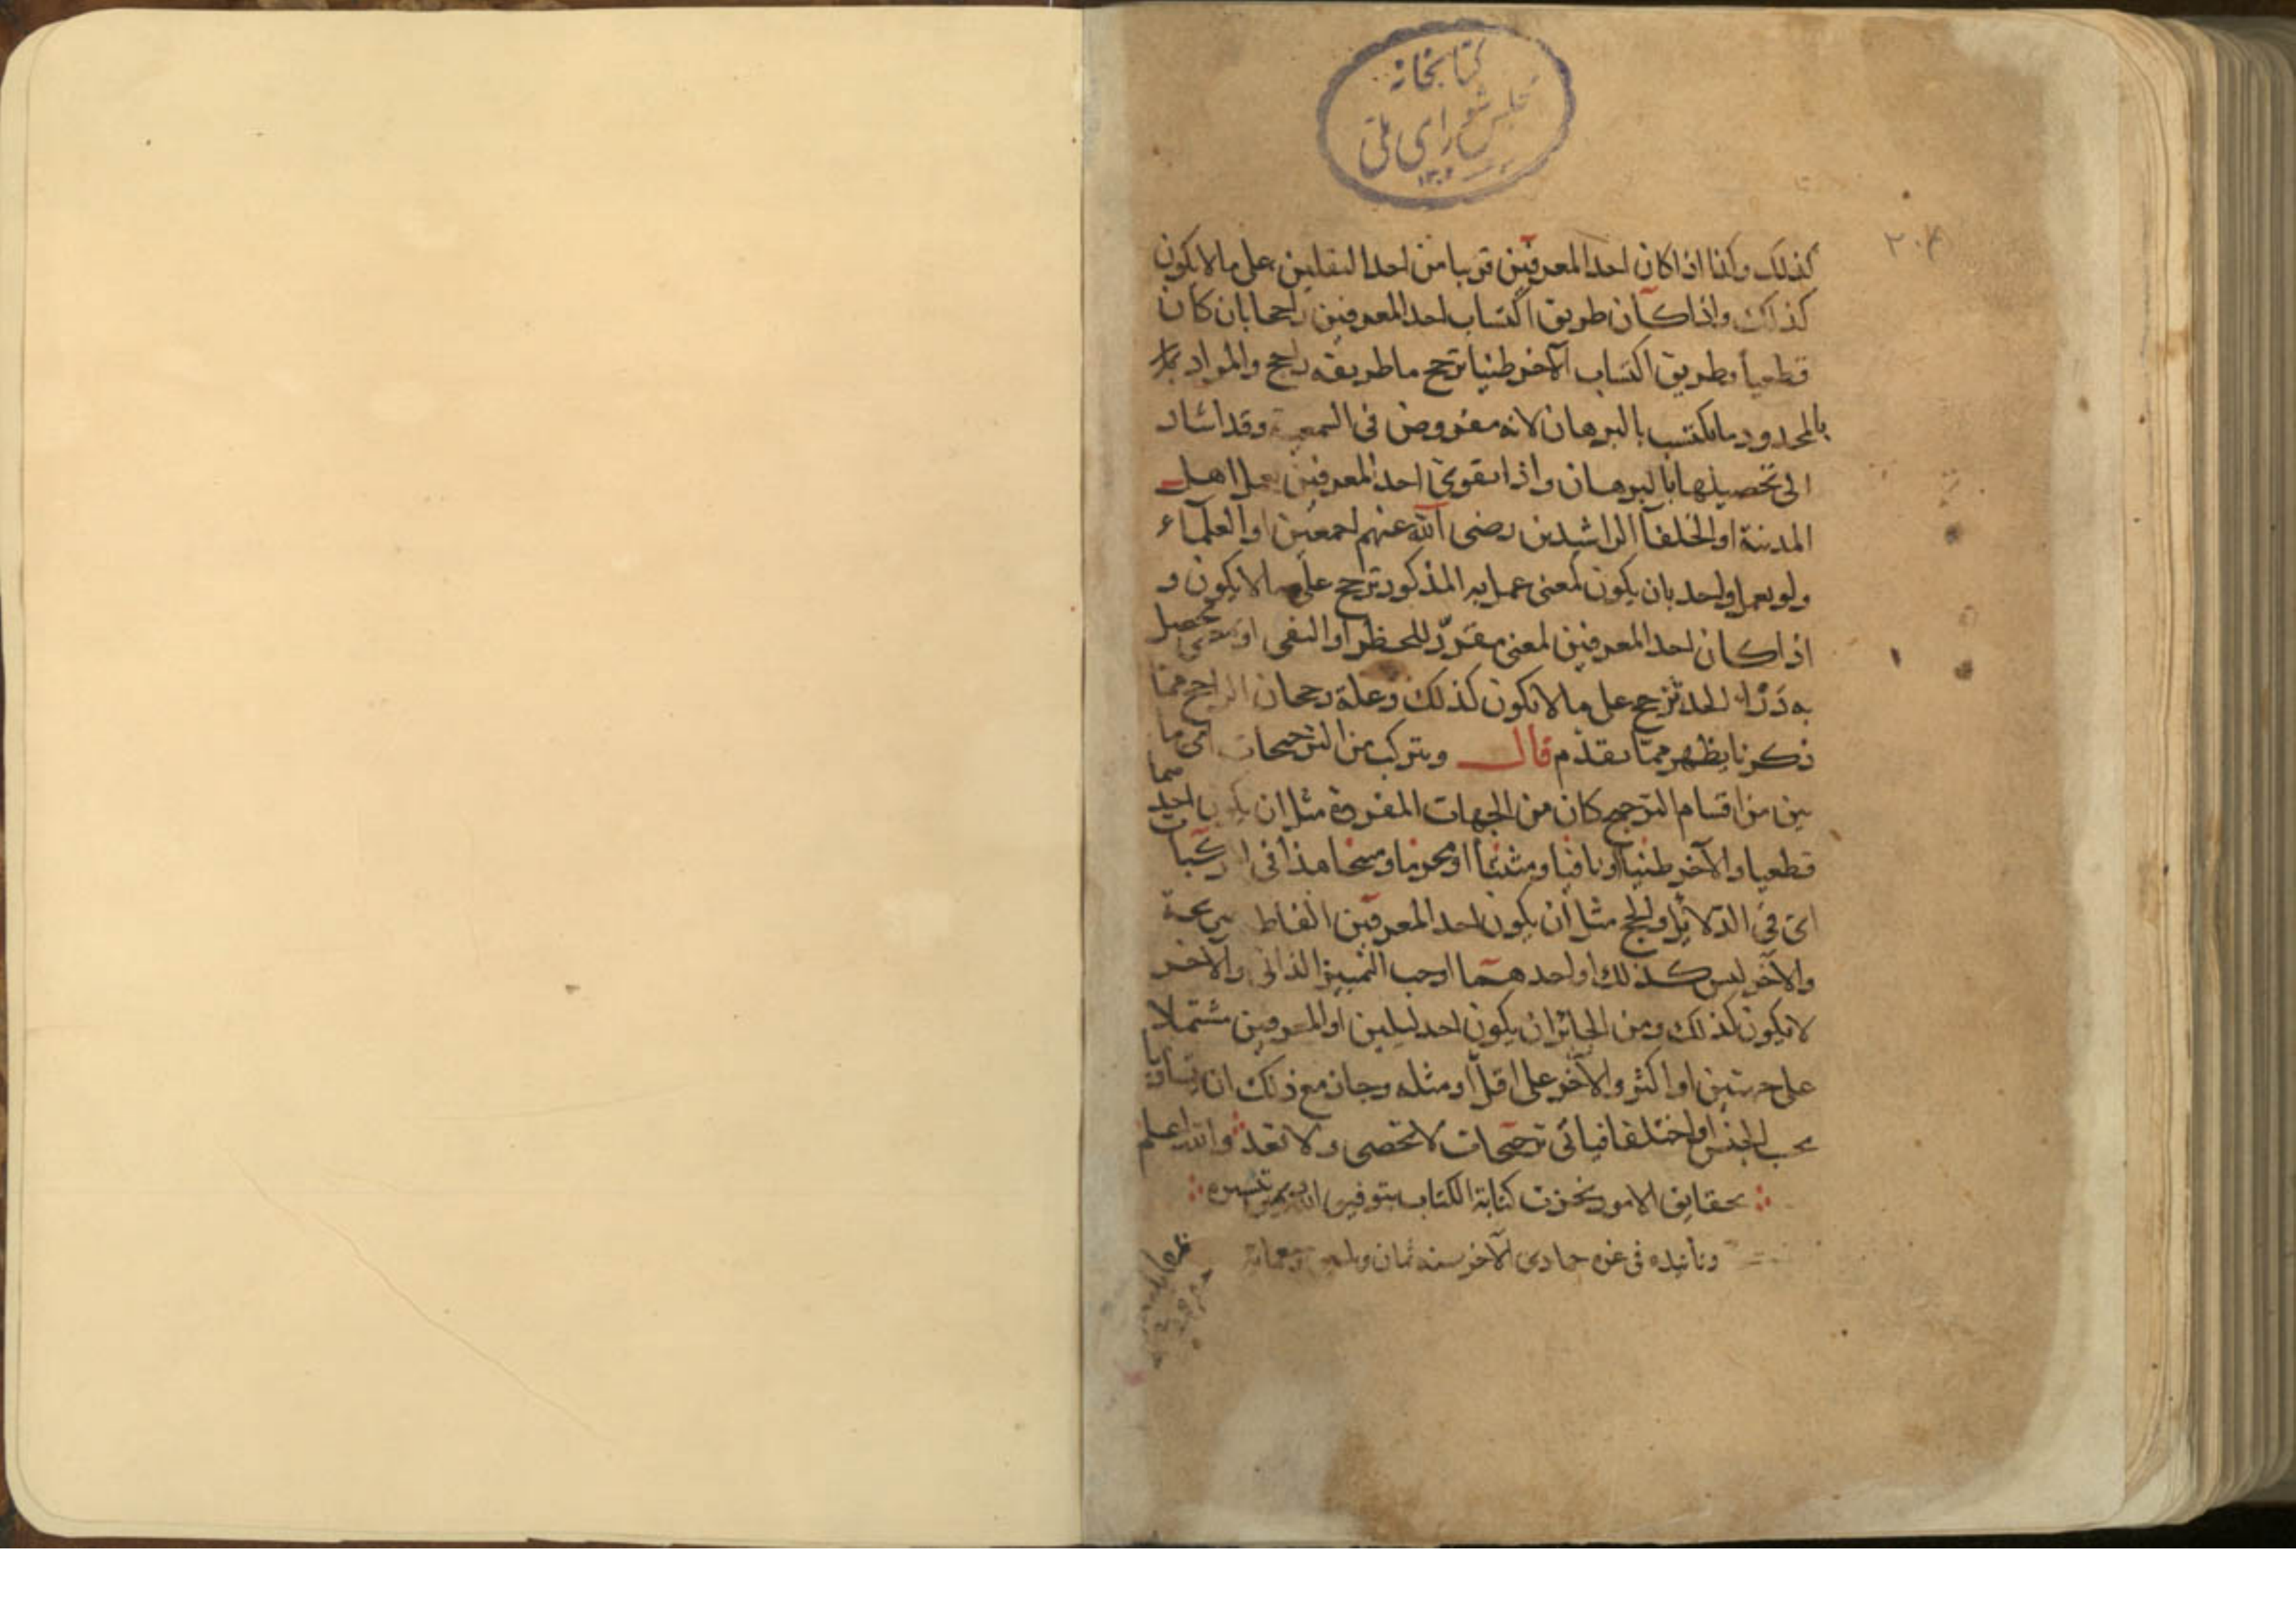 كتابخانه
مجلس شورای ملی
١٣٠٢
٢٠٤
كذلك وكذا اذا كان احد المعرفين قريبا من احد النقلين على ما لا يكون
كذلك واذا كان طريق اكتساب احد المعرفين راجحا بان كان
قطعيا وطريق اكتساب الآخر ظنيا ترجح ما طريقه راجح والمراد
بالمحدود ما يكتسب بالبرهان لانه مفروض في السمعية وقد اشار
الى تحصيلها بالبرهان واذا تقوى احد المعرفين بعمل اهل
المدينة او الخلفآ الراشدين رضى الله عنهم اجمعين او العلمآء
ولو بعمل واحد بان يكون لمعنى عمل به المذكور ترجح على ما لا يكون و
اذا كان احد المعرفين لمعنى مقرر للحظر او النفى او معنى يحصل
به درء الحد ترجح على ما لا يكون كذلك وعلة رجحان الراجح مما
ذكرنا يظهر مما تقدم قال ويتركب من الترجيحات اى ما
بين من اقسام الترجيح كان من الجهات المفردة مثل ان يكون احدهما
قطعيا والآخر ظنيا او نافيا ومثبتا او محرما ومبيحا هذا فى المركبات
اى فى الدلائل والحجج مثل ان يكون احد المعرفين الفاظه صريحة
والآخر ليس كذلك او احدهما اوجب التمييز الذاتى والآخر
لا يكون كذلك ومن الجائز ان يكون احد ليلين او المعرفين مشتملا
على جهتين او اكثر والآخر على اقل او مثله وجاز مع ذلك ان يتساويا
بحسب الجنس او اختلفا فيأتى ترجيحات لا تحصى ولا تعد والله اعلم
بحقايق الامور نجزت كتابة الكتاب بتوفيق الله وتيسيره
وتأييده فى غره جمادى الآخر سنه ثمان